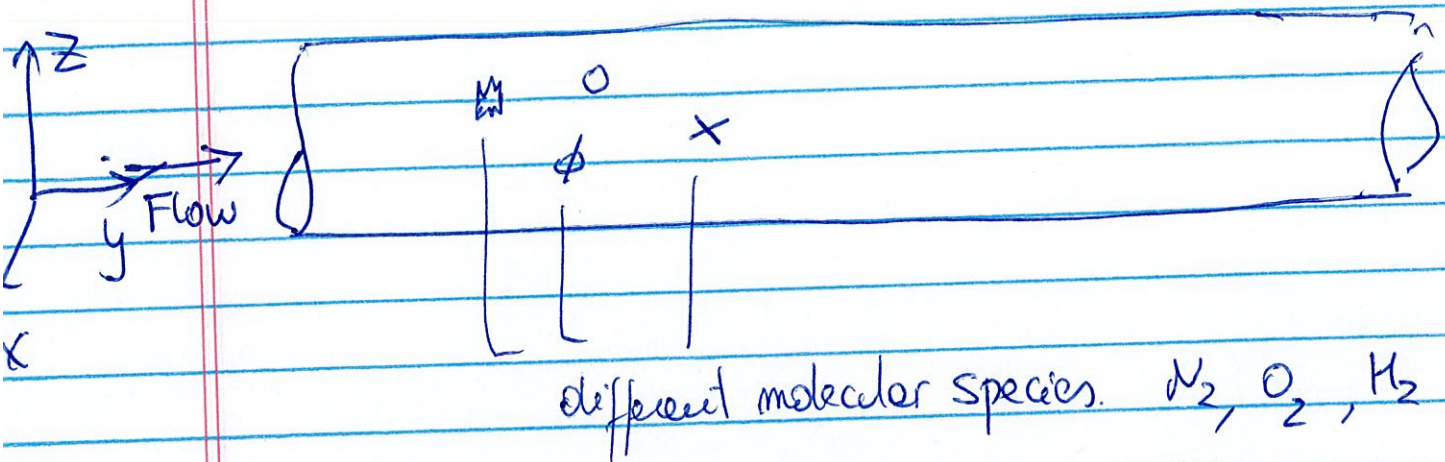 Z
O
X
φ
Flow
y
x
different molecular species. N₂, O₂, H₂